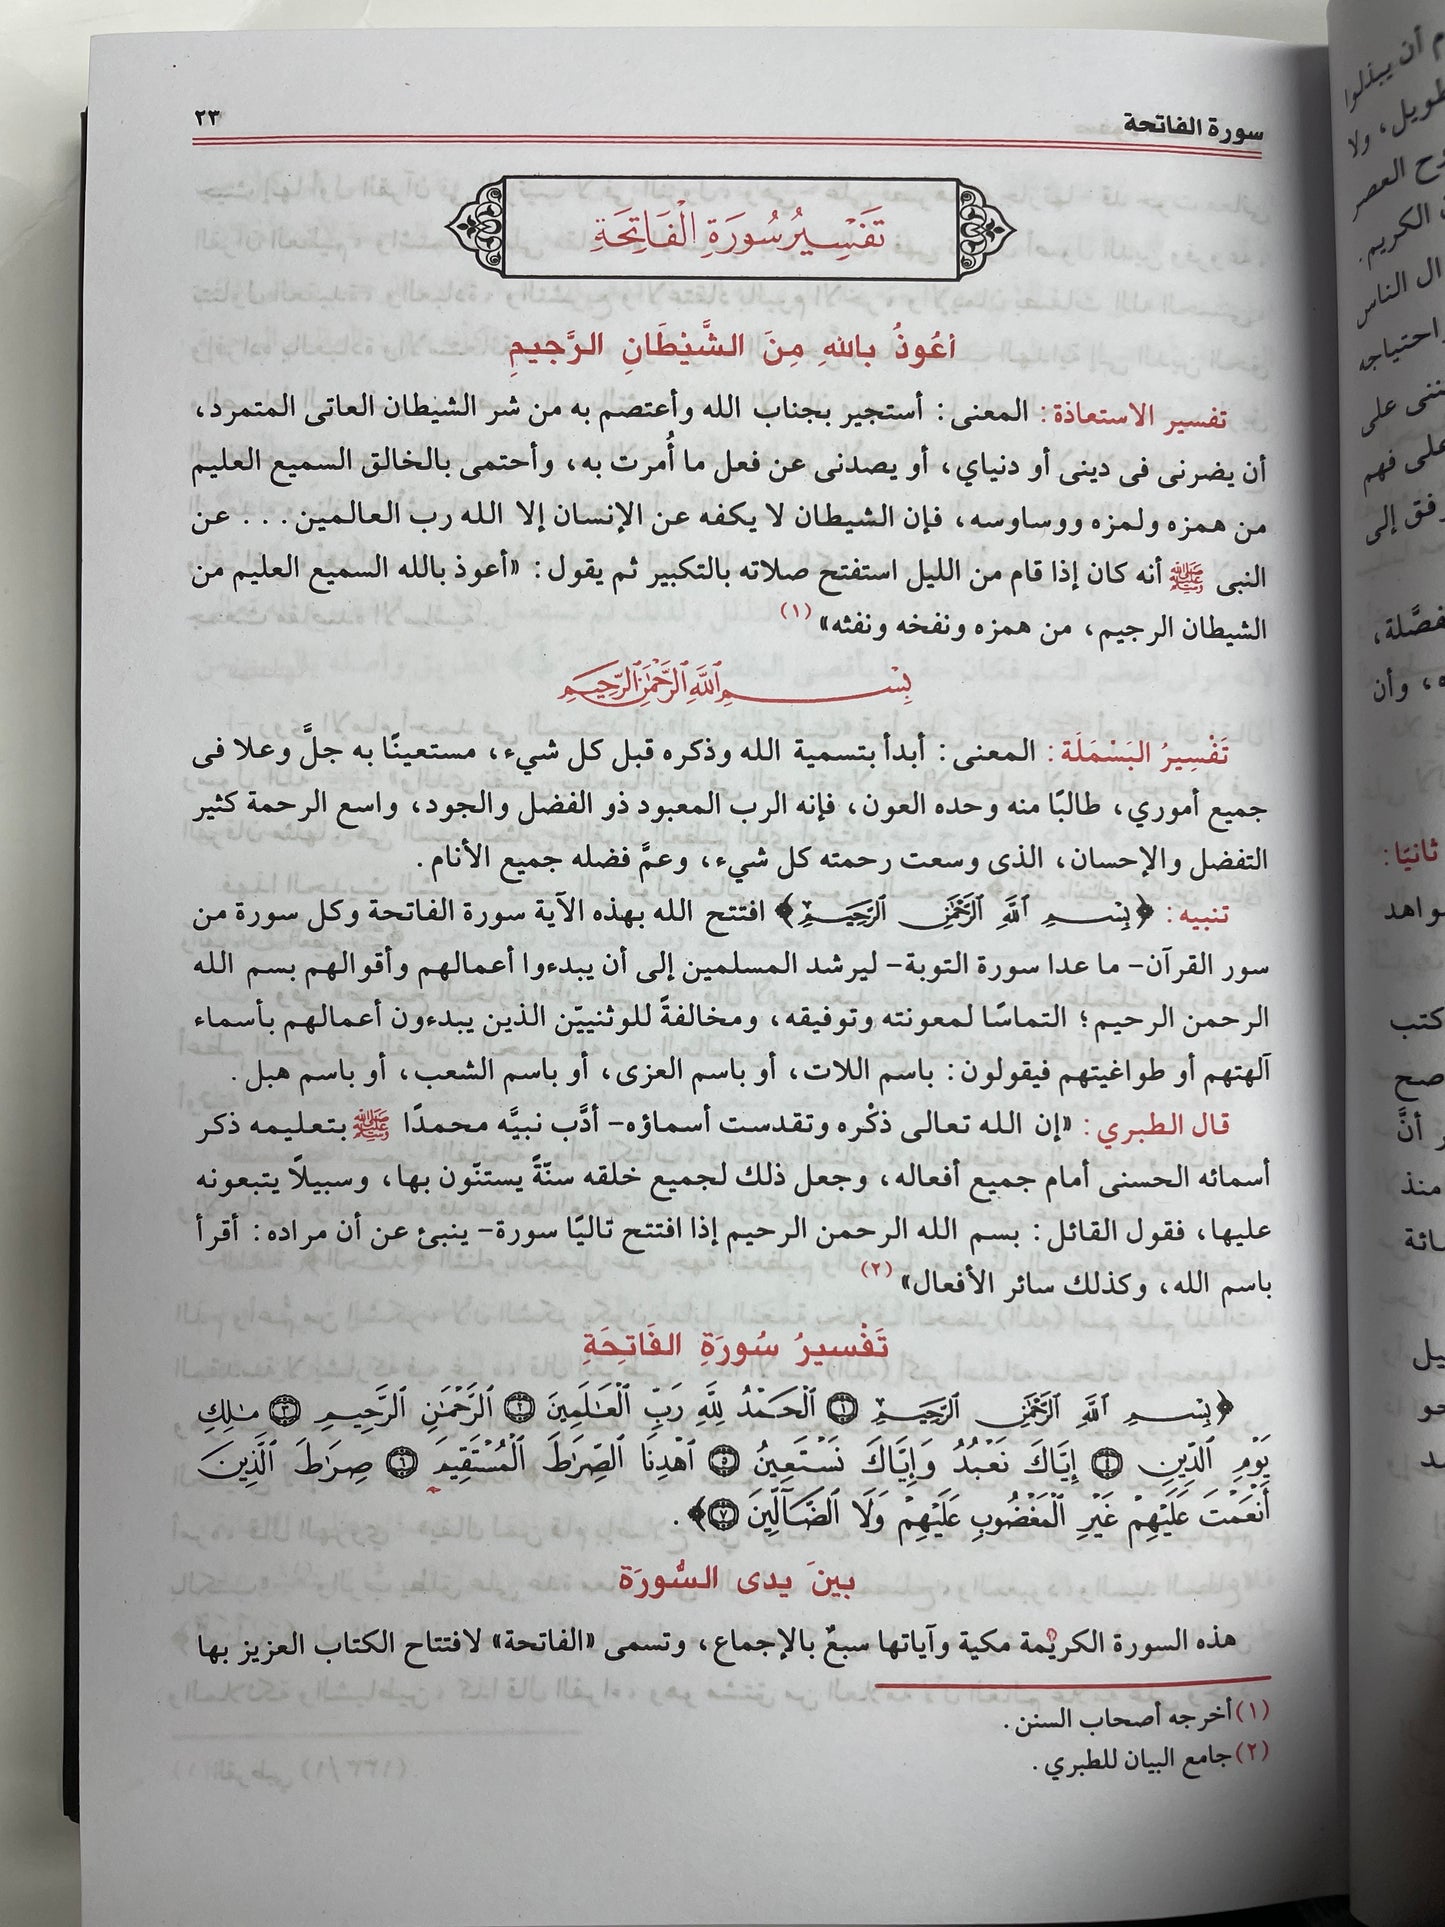 سورة الفاتحة
٢٣
تَفْسِيرُ سُورَةِ الْفَاتِحَةِ
أعُوذُ بالله مِنَ الشَّيْطَانِ الرَّجِيمِ
تفسير الاستعاذة: المعنى: أستجير بجناب الله وأعتصم به من شر الشيطان العاتى المتمرد،
أن يضرنى فى دينى أو دنياي، أو يصدنى عن فعل ما أُمرت به، وأحتمى بالخالق السميع العليم
من همزه ولمزه ووساوسه، فإن الشيطان لا يكفه عن الإنسان إلا الله رب العالمين... عن
النبى ﷺ أنه كان إذا قام من الليل استفتح صلاته بالتكبير ثم يقول: «أعوذ بالله السميع العليم من
الشيطان الرجيم، من همزه ونفخه ونفثه» (١)
بِسْمِ اللَّهِ الرَّحْمَٰنِ الرَّحِيمِ
تَفْسِيرُ البَسْمَلَة: المعنى: أبدأ بتسمية الله وذكره قبل كل شيء، مستعينًا به جلَّ وعلا فى
جميع أموري، طالبًا منه وحده العون، فإنه الرب المعبود ذو الفضل والجود، واسع الرحمة كثير
التفضل والإحسان، الذى وسعت رحمته كل شيء، وعمَّ فضله جميع الأنام.
تنبيه: ﴿بِسْمِ ٱللَّهِ ٱلرَّحْمَٰنِ ٱلرَّحِيمِ﴾ افتتح الله بهذه الآية سورة الفاتحة وكل سورة من
سور القرآن- ما عدا سورة التوبة- ليرشد المسلمين إلى أن يبدءوا أعمالهم وأقوالهم بسم الله
الرحمن الرحيم؛ التماسًا لمعونته وتوفيقه، ومخالفةً للوثنييّن الذين يبدءون أعمالهم بأسماء
آلهتهم أو طواغيتهم فيقولون: باسم اللات، أو باسم العزى، أو باسم الشعب، أو باسم هبل.
قال الطبري: «إن الله تعالى ذكْره وتقدست أسماؤه- أدَّب نبيَّه محمدًا ﷺ بتعليمه ذكر
أسمائه الحسنى أمام جميع أفعاله، وجعل ذلك لجميع خلقه سنّةً يستنّون بها، وسبيلًا يتبعونه
عليها، فقول القائل: بسم الله الرحمن الرحيم إذا افتتح تاليًا سورة- ينبئ عن أن مراده: أقرأ
باسم الله، وكذلك سائر الأفعال» (٢)
تَفْسيرُ سُورَةِ الفَاتِحَةِ
﴿بِسْمِ ٱللَّهِ ٱلرَّحْمَٰنِ ٱلرَّحِيمِ ١ ٱلْحَمْدُ لِلَّهِ رَبِّ ٱلْعَٰلَمِينَ ٢ ٱلرَّحْمَٰنِ ٱلرَّحِيمِ ٣ مَٰلِكِ
يَوْمِ ٱلدِّينِ ٤ إِيَّاكَ نَعْبُدُ وَإِيَّاكَ نَسْتَعِينُ ٥ ٱهْدِنَا ٱلصِّرَٰطَ ٱلْمُسْتَقِيمَ ٦ صِرَٰطَ ٱلَّذِينَ
أَنْعَمْتَ عَلَيْهِمْ غَيْرِ ٱلْمَغْضُوبِ عَلَيْهِمْ وَلَا ٱلضَّآلِّينَ ٧﴾.
بينَ يدى السُّورَة
هذه السورة الكريمة مكية وآياتها سبعٌ بالإجماع، وتسمى «الفاتحة» لافتتاح الكتاب العزيز بها
(١) أخرجه أصحاب السنن.
(٢) جامع البيان للطبري.
م أن يبذلوا
طويل، ولا
وح العصر
الكريم.
ال الناس
احتياجه
على
على فهم
فق إلى
ه، وأن
ثانيًا:
كتب
صح
أنَّ
منذ